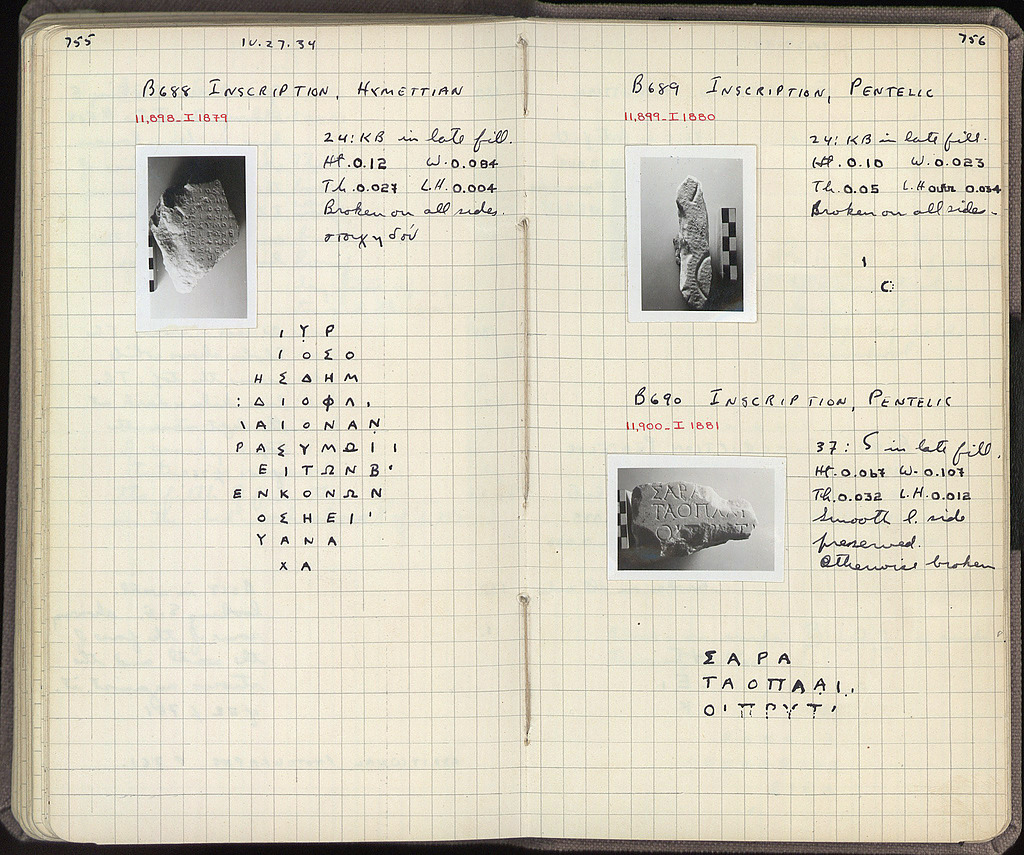 755
IV.27.34
B688 INSCRIPTION, HYMETTIAN
11,898-I 1879
24:KB in late fill.
Ht. 0.12 W. 0.084
Th. 0.027 L.H. 0.004
Broken on all sides.
στοιχηδόν
Ι Υ Ρ
Ι Ο Σ Ο
Η Σ Δ Η Μ
: Δ Ι Ο Φ Λ
\ Α Ι Ο Ν Α Ν
Ρ Α Σ Υ Μ Ω Ι Ι
Ε Ι Τ Ω Ν Β '
Ε Ν Κ Ο Ν Ω Ν
Ο Σ Η Ε Ι '
Υ Α Ν Α
Χ Α
756
B689 INSCRIPTION, PENTELIC
11,899-I 1880
24:KB in late fill.
Ht. 0.10 W. 0.023
Th. 0.05 L.H. over 0.034
Broken on all sides.
Ι
C
B690 INSCRIPTION, PENTELIC
11,900-I 1881
37:S in late fill.
Ht. 0.067 W. 0.107
Th. 0.032 L.H. 0.012
Smooth l. side
preserved.
Otherwise broken
ΣΑΡΑ
ΤΑΟΠΛΑΙ
ΣΑΡΑ
ΤΑΟΠΑΑΙ.
Ο'ΠΡΥΤ'